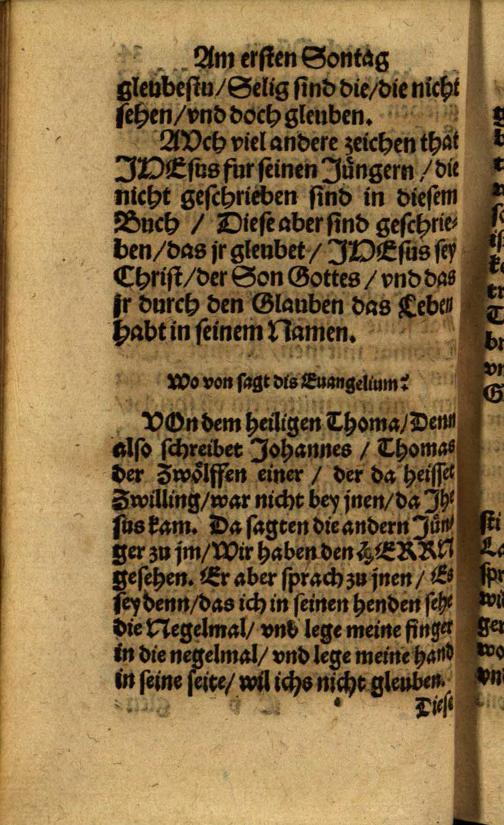 Am ersten Sontag
gleubestu/Selig sind die/die nicht
sehen/vnd doch gleuben.
AVch viel andere zeichen that
JHEsus fur seinen Jüngern / die
nicht geschrieben sind in diesem
Buch / Diese aber sind geschrie-
ben/das jr gleubet / JHEsus sey
Christ/der Son Gottes / vnd das
jr durch den Glauben das Leben
habt in seinem Namen.
Wo von sagt dis Euangelium?
VOn dem heiligen Thoma/Denn
also schreibet Johannes / Thomas
der Zwölffen einer / der da heisset
Zwilling/war nicht bey jnen/da Jhe
sus kam. Da sagten die andern Jün-
ger zu jm/Wir haben den HERRN
gesehen. Er aber sprach zu jnen / Es
sey denn/das ich in seinen henden sehe
die Negelmal/ vnd lege meine finger
in die negelmal/ vnd lege meine hand
in seine seite/ wil ichs nicht gleuben.
Diese